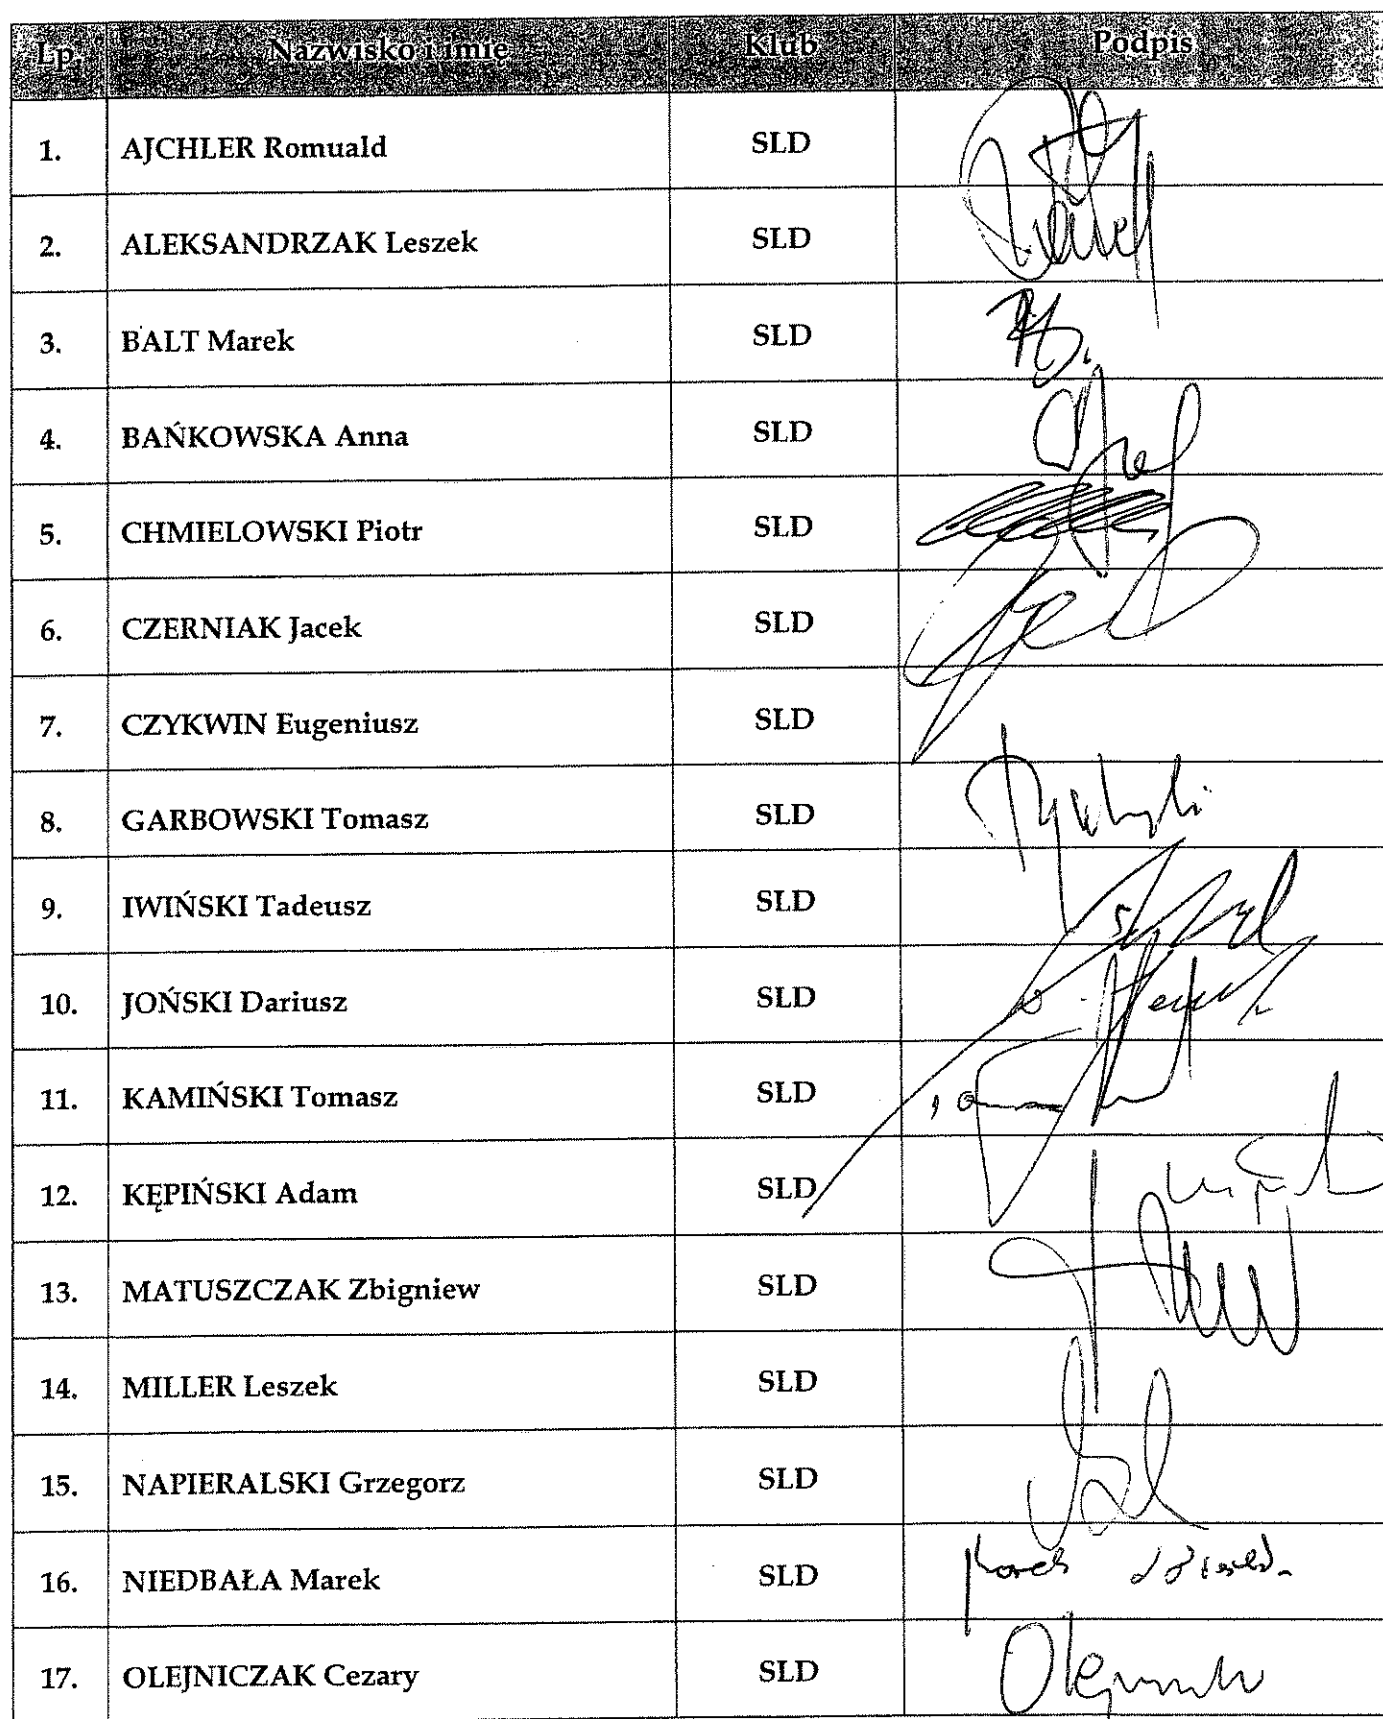 Lp. Nazwisko i imię Klub Podpis
1. AJCHLER Romuald SLD
2. ALEKSANDRZAK Leszek SLD
3. BALT Marek SLD
4. BAŃKOWSKA Anna SLD
5. CHMIELOWSKI Piotr SLD
6. CZERNIAK Jacek SLD
7. CZYKWIN Eugeniusz SLD
8. GARBOWSKI Tomasz SLD
9. IWIŃSKI Tadeusz SLD
10. JOŃSKI Dariusz SLD
11. KAMIŃSKI Tomasz SLD
12. KĘPIŃSKI Adam SLD
13. MATUSZCZAK Zbigniew SLD
14. MILLER Leszek SLD
15. NAPIERALSKI Grzegorz SLD
16. NIEDBAŁA Marek SLD
17. OLEJNICZAK Cezary SLD